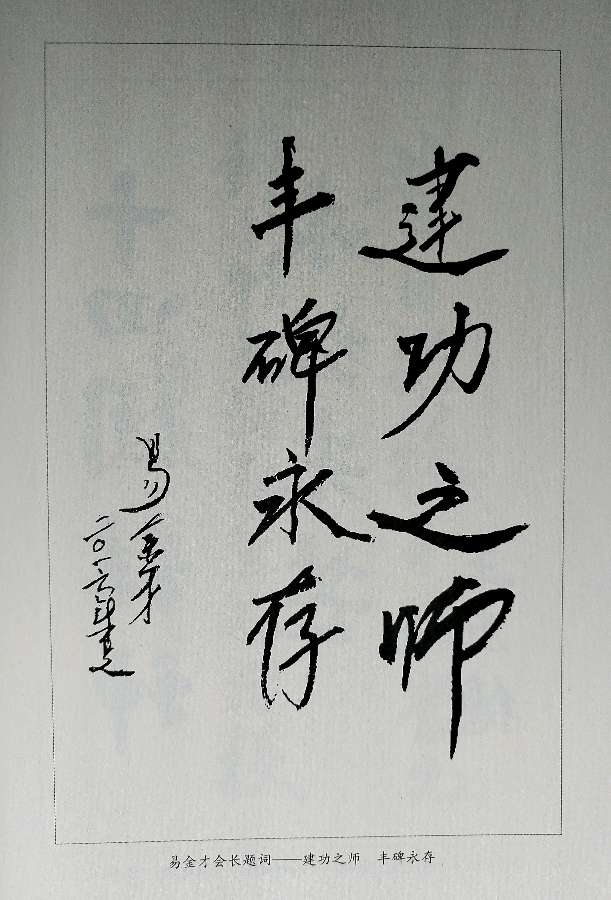 建功之师
丰碑永存
易金才
二〇一六年春
易金才会长题词——建功之师　丰碑永存